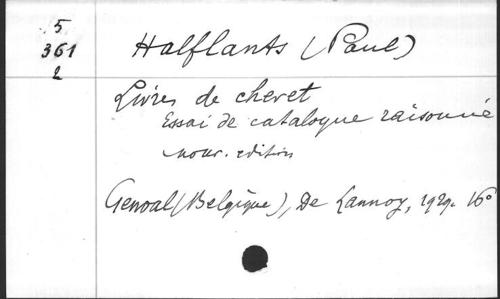 5
361
2
Halflants (Paul)
Livres de chevet
Essai de catalogue raisonné
nouv. edition
Genval (Belgique), De Lannoy, 1929. 16°